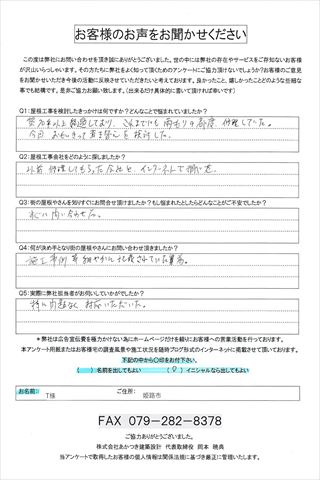 お客様のお声をお聞かせください
この度は弊社にお問い合わせを頂き誠にありがとうございました。世の中には弊社の存在やサービスをご存知ないお客様
が沢山いらっしゃいます。その方たちに弊社をよく知って頂くためのアンケートにご協力頂けないでしょうか?お客様のご意見
をお聞かせいただき今後の活動に反映させていただきたいと考えております。良かったこと、嬉しかったことどのような些細な
事でも結構です。是非ご協力お願い致します。(出来るだけ具体的に書いて頂ければ幸いです)
Q1:屋根工事を検討したきっかけは何ですか?どんなことで悩まれていましたか?
築20年以上経過しており、これまでにも雨もりの都度、修理していた。
今回、おもいきって葺き替えを検討した。
Q2:屋根工事会社をどのように探しましたか?
以前修理してもらった会社と、インターネットで
Q3:街の屋根やさんを知りすぐにお問合せ頂けましたか?もし悩まれたとしたらどんなことがご不安でしたか?
すぐに問い合わせた。
Q4:何が決め手となり街の屋根やさんにお問い合わせ頂きましたか?
施工事例等細やかに記載されていた為。
Q5:実際に弊社担当者がお伺いしていかがでしたか?
特に問題なく対応いただいた。
*弊社は広告宣伝費を極力かけない為にホームページだけを頼りにお客様への営業活動を行っております。
本アンケート用紙またはお客様宅の調査風景や施工状況を随時ブログ形式のインターネットに掲載させて頂いております。
下記の中から〇印をお付け下さい。
( )名前を出してもよい (〇)イニシャルなら出してもよい
お名前: T様 ご住所: 姫路市
FAX 079-282-8378
ご協力ありがとうございました。
株式会社あかつき建設設計 代表取締役 岡本 暁典
当アンケートで取得したお客様の個人情報は関係法規に基づき厳正に管理いたします。